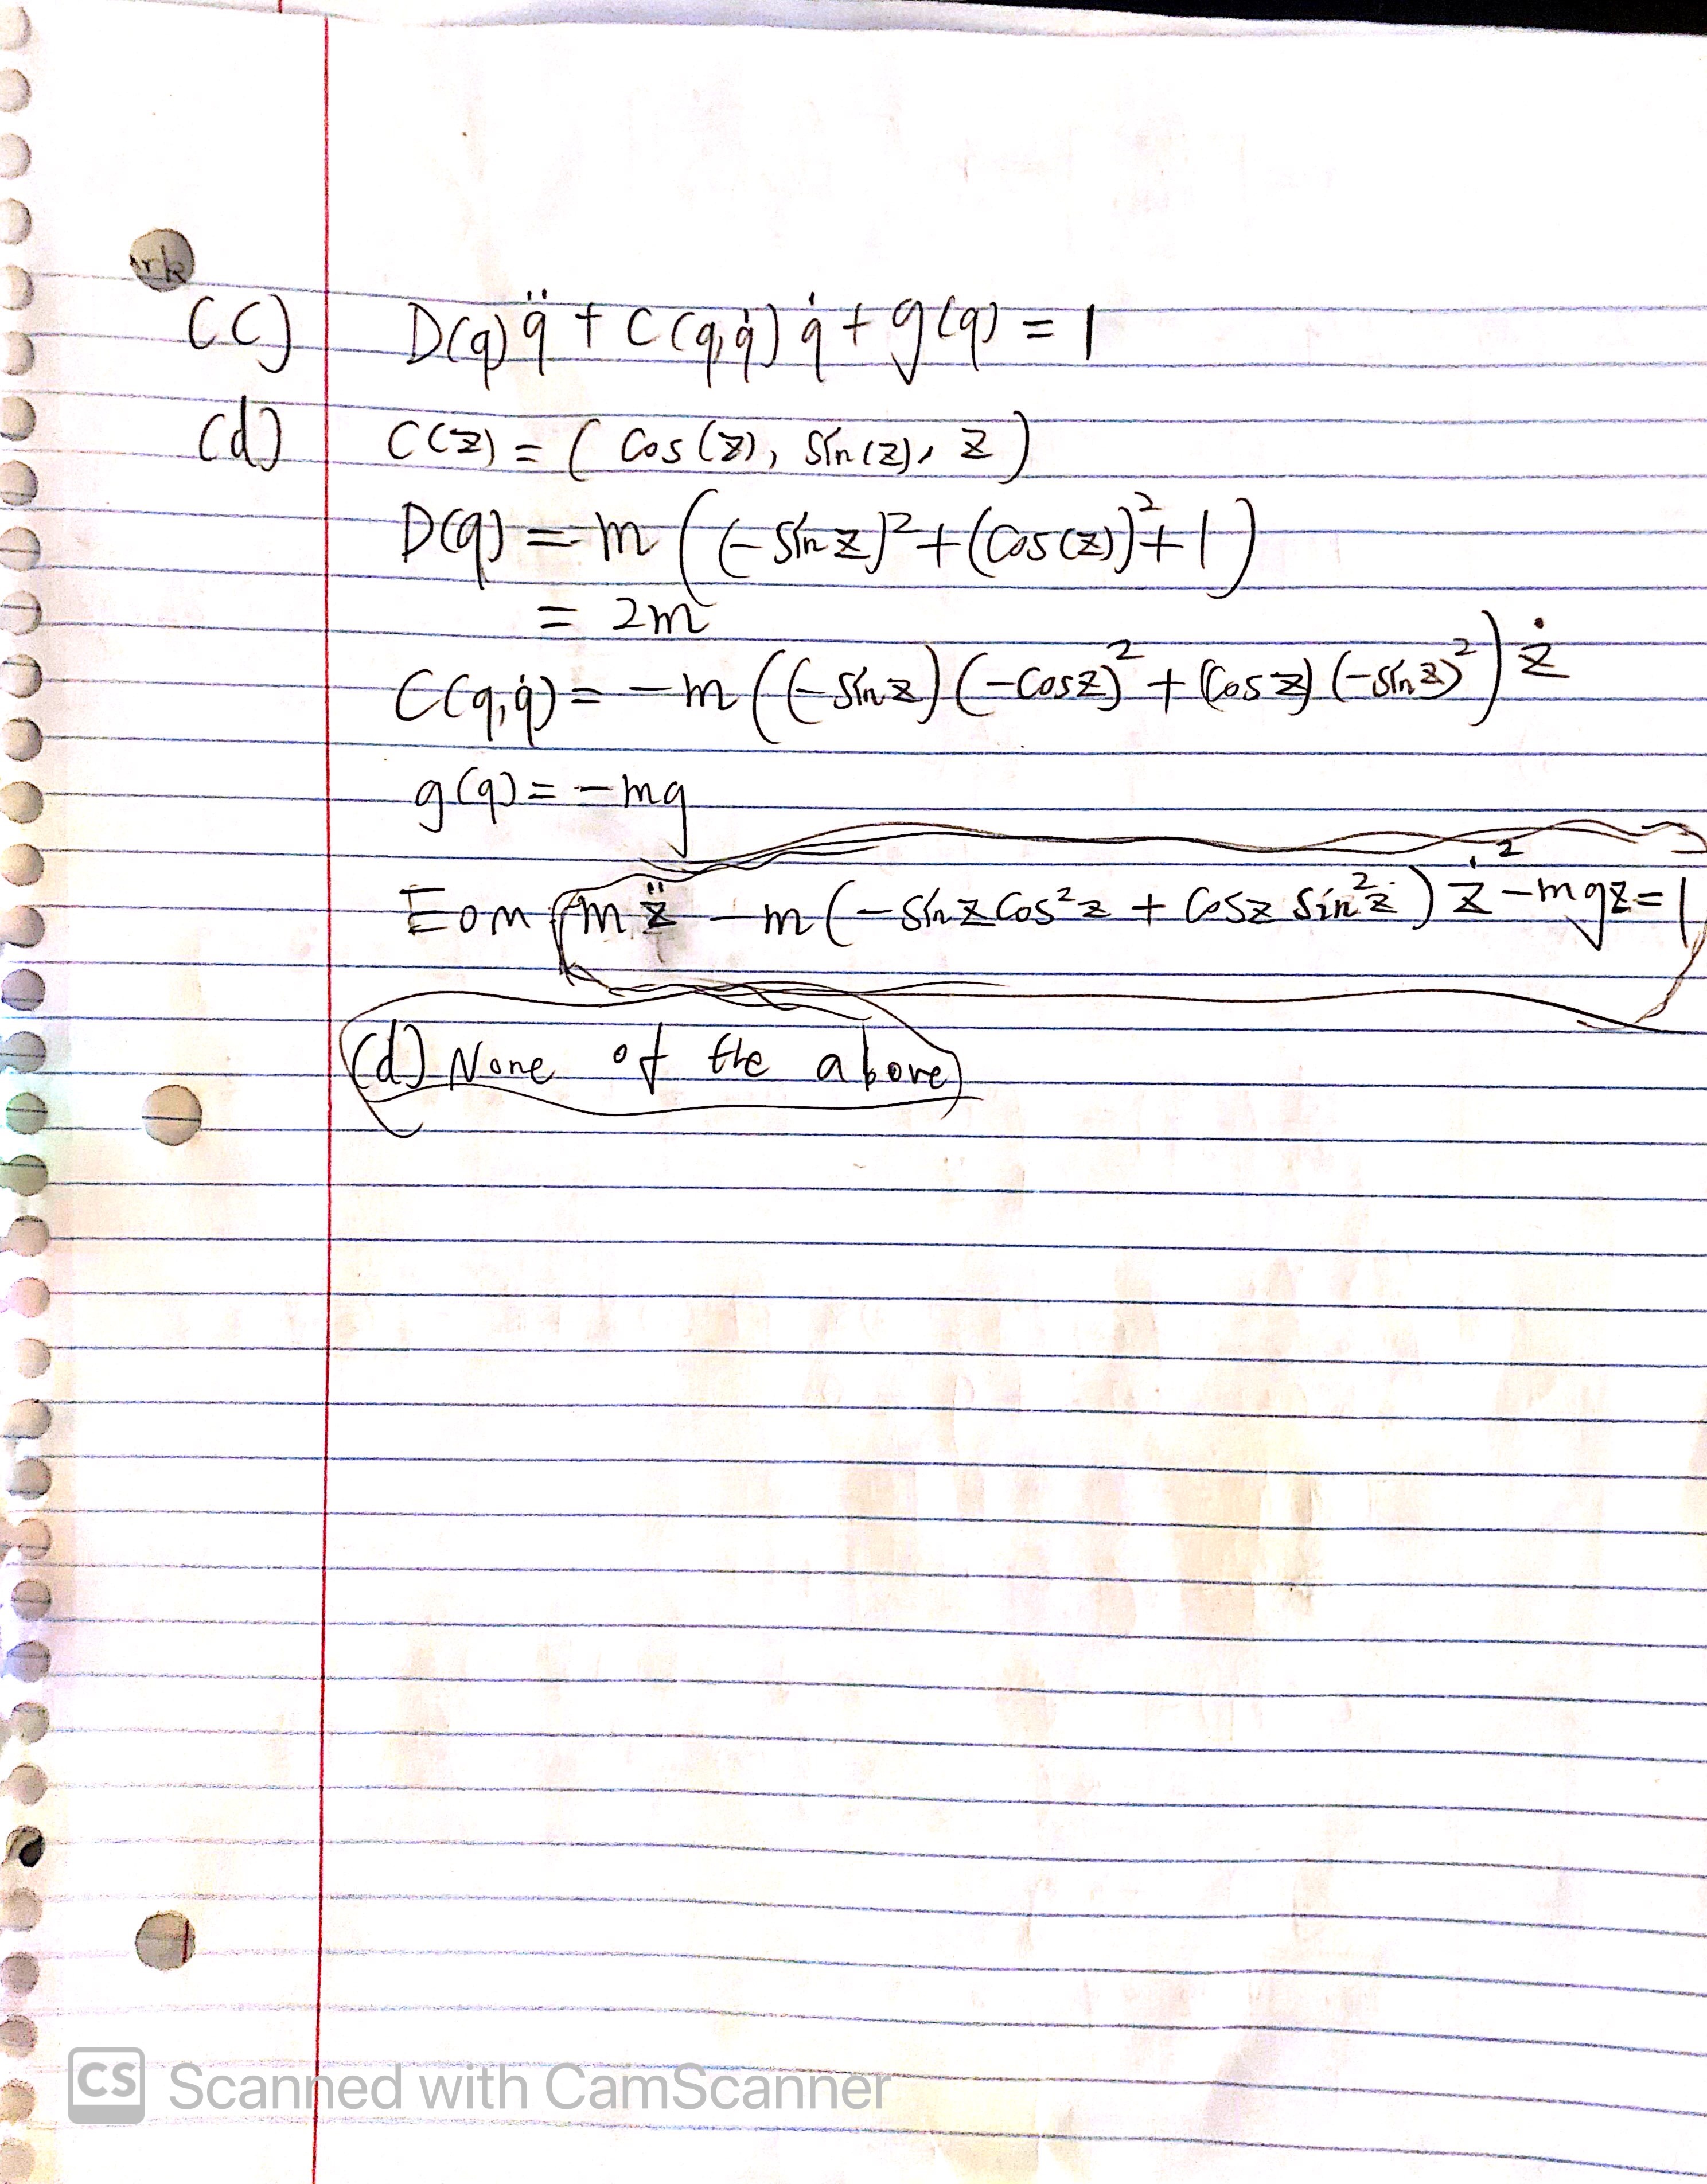 ark
(c) D(q)q̈ + C(q,q̇)q̇ + g(q) = 1
(d) C(z) = (cos(z), sin(z), z)
D(q) = m((-sin z)² + (cos(z))² + 1)
= 2m
C(q,q̇) = -m((-sin z)(-cos z)² + (cos z)(-sin z)²) ż
g(q) = -mg
EOM m z̈ - m(-sin z cos² z + cos z sin² z) ż² - mgz = 1
(d) None of the above
CS Scanned with CamScanner